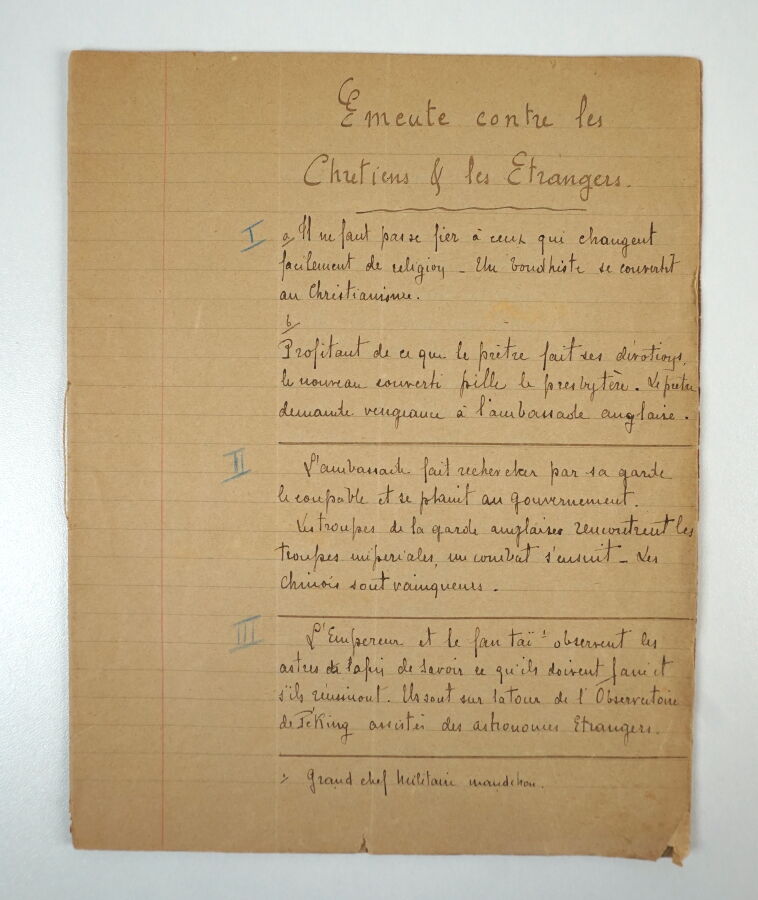 Emeute contre les
Chretiens & les Etrangers.
I a/ Il ne faut pas se fier à ceux qui changent
facilement de religion _ Un boudhiste se convertit
au Christianisme.
b/
Profitant de ce que le prêtre fait ses dévotions,
le nouveau converti pille le presbytère. Le prêtre
demande vengeance à l'ambassade anglaise.
II L'ambassade fait rechercher par sa garde
le coupable et se plaint au gouvernement.
Les troupes de la garde anglaises rencontrent les
troupes impériales, un combat s'ensuit _ Les
Chinois sont vainqueurs.
III L'Empereur et le fan taï 1 observent les
astres afin de savoir ce qu'ils doivent faire et
s'ils réussiront. Ils sont sur la tour de l'Observatoire
de Pé King assistés des astronomes Etrangers.
Grand chef militaire mandchou.